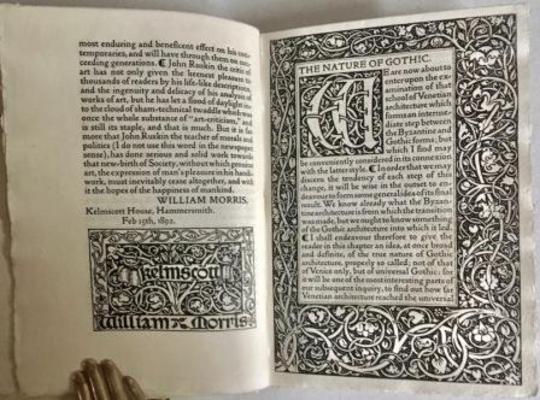 most enduring and beneficent effect on his con-
temporaries, and will have through them on suc-
ceeding generations. ⁋ John Ruskin the critic of
art has not only given the keenest pleasure to
thousands of readers by his life-like descriptions,
and the ingenuity and delicacy of his analysis of
works of art, but he has let a flood of daylight in-
to the cloud of sham-technical twaddle which was
once the whole substance of "art-criticism," and
is still its staple, and that is much. But it is far
more that John Ruskin the teacher of morals and
politics (I do not use this word in the newspaper
sense), has done serious and solid work towards
that new-birth of Society, without which genuine
art, the expression of man's pleasure in his handi-
work, must inevitably cease altogether, and with
it the hopes of the happiness of mankind.
WILLIAM MORRIS,
Kelmscott House, Hammersmith.
Feb 15th, 1892.
Kelmscott
William Morris
THE NATURE OF GOTHIC.
WE are now about to
enter upon the ex-
amination of that
school of Venetian
architecture which
forms an interme-
diate step between
the Byzantine and
Gothic forms; but
which I find may
be conveniently considered in its connexion
with the latter style. ⁋ In order that we may
discern the tendency of each step of this
change, it will be wise in the outset to en-
deavour to form some general idea of its final
result. We know already what the Byzan-
tine architecture is from which the transition
was made, but we ought to know something
of the Gothic architecture into which it led.
⁋ I shall endeavour therefore to give the
reader in this chapter an idea, at once broad
and definite, of the true nature of Gothic
architecture, properly so called; not of that
of Venice only, but of universal Gothic: for
it will be one of the most interesting parts of
our subsequent inquiry, to find out how far
Venetian architecture reached the universal